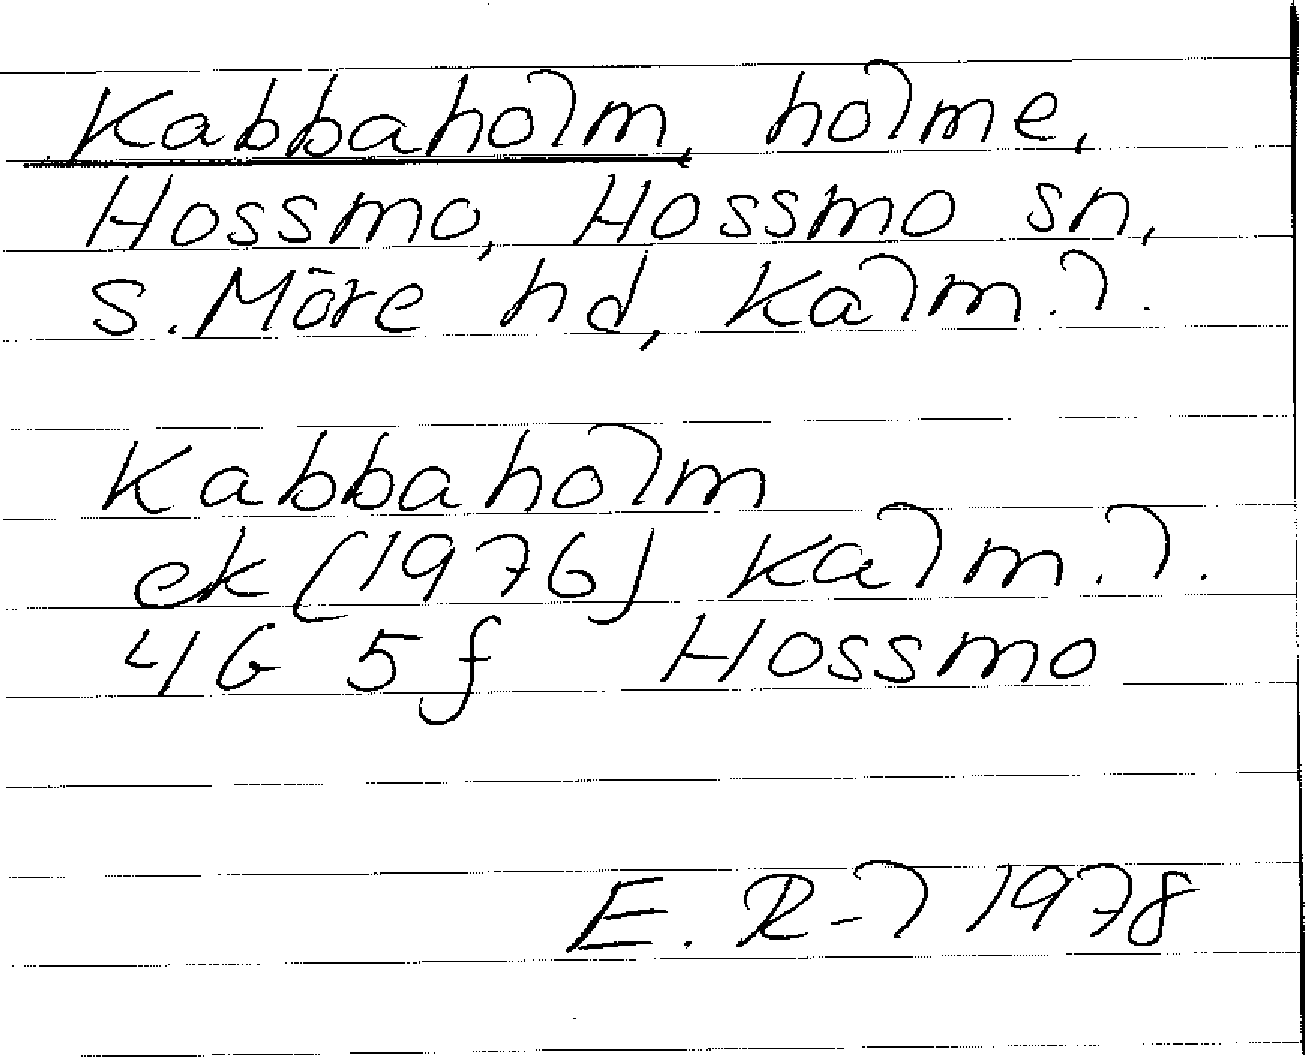 Kabbaholm, holme,
Hossmo, Hossmo sn,
S. Möre hd, Kalm. l.
Kabbaholm
ek (1976) Kalm. l.
4G 5f Hossmo
E. R-l 1978